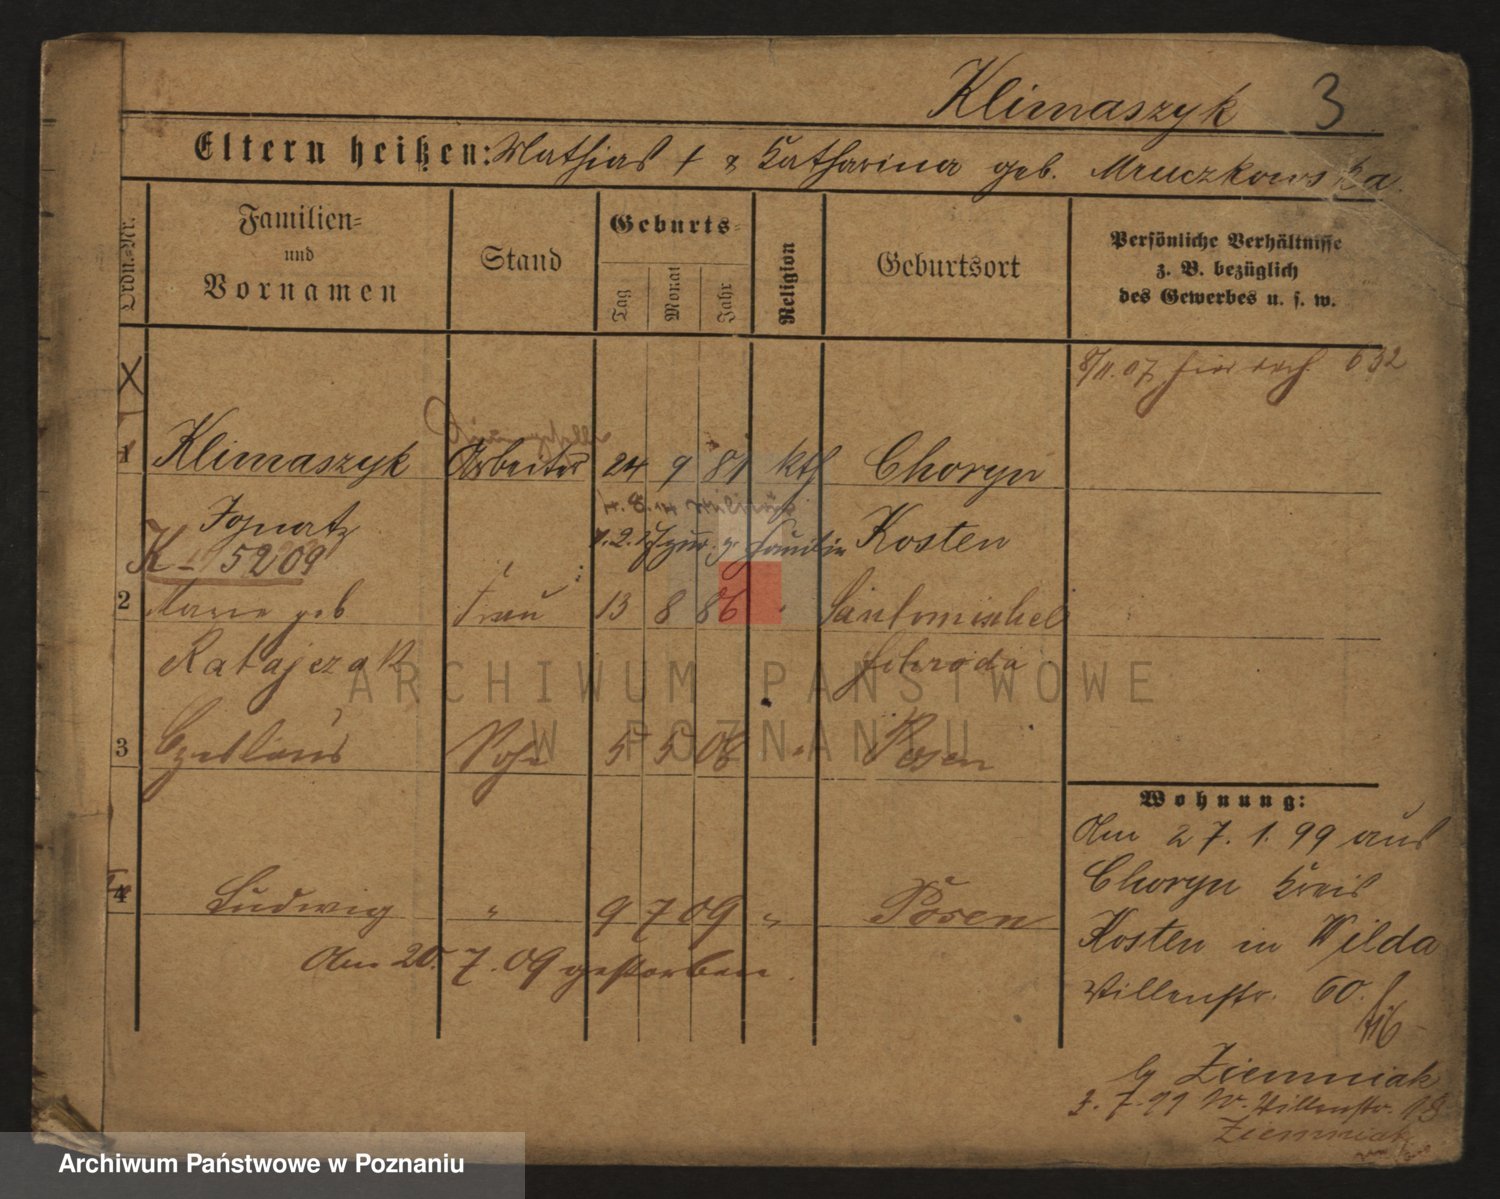 Klimaszyk 3
Eltern heißen: Mathias † & Katharina geb. Mruczkowska.
Ordn.-Nr.
Familien- und Vornamen
Stand
Geburts-
Tag Monat Jahr
Religion
Geburtsort
Persönliche Verhältnisse
z. B. bezüglich
des Gewerbes u. s. w.
8/11.07 632
X
1 Klimaszyk Arbeiter 24 9 81 kth Choryn
Ignatz Kosten
K - 5209
2 Marie geb Frau 13 8 86 "
Ratajczak Schroda
3 5 5 06 " Posen
4 Ludwig " 9 7 09 " Posen
Am 20. 7. 09 gestorben.
Wohnung:
Am 27. 1. 99 aus
Choryn Kreis
Kosten in Wilda
Villenstr. 60.
b/ Ziemniak
3. 7. 99 W. Villenstr. 18
Ziemniak
ARCHIWUM PAŃSTWOWE
W POZNANIU
Archiwum Państwowe w Poznaniu